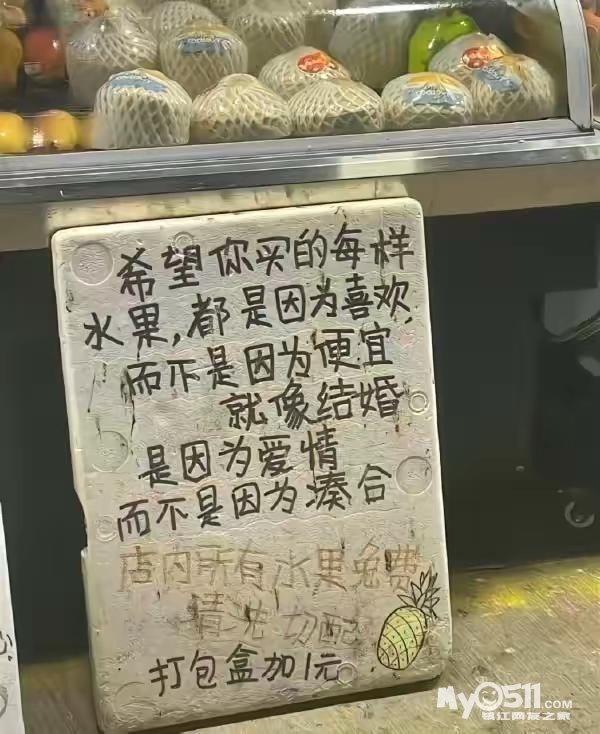 希望你买的每样
水果,都是因为喜欢,
而不是因为便宜
就像结婚
是因为爱情
而不是因为凑合
店内所有水果免费
清洗切配
打包盒加1元
My0511.com
镇江网友之家